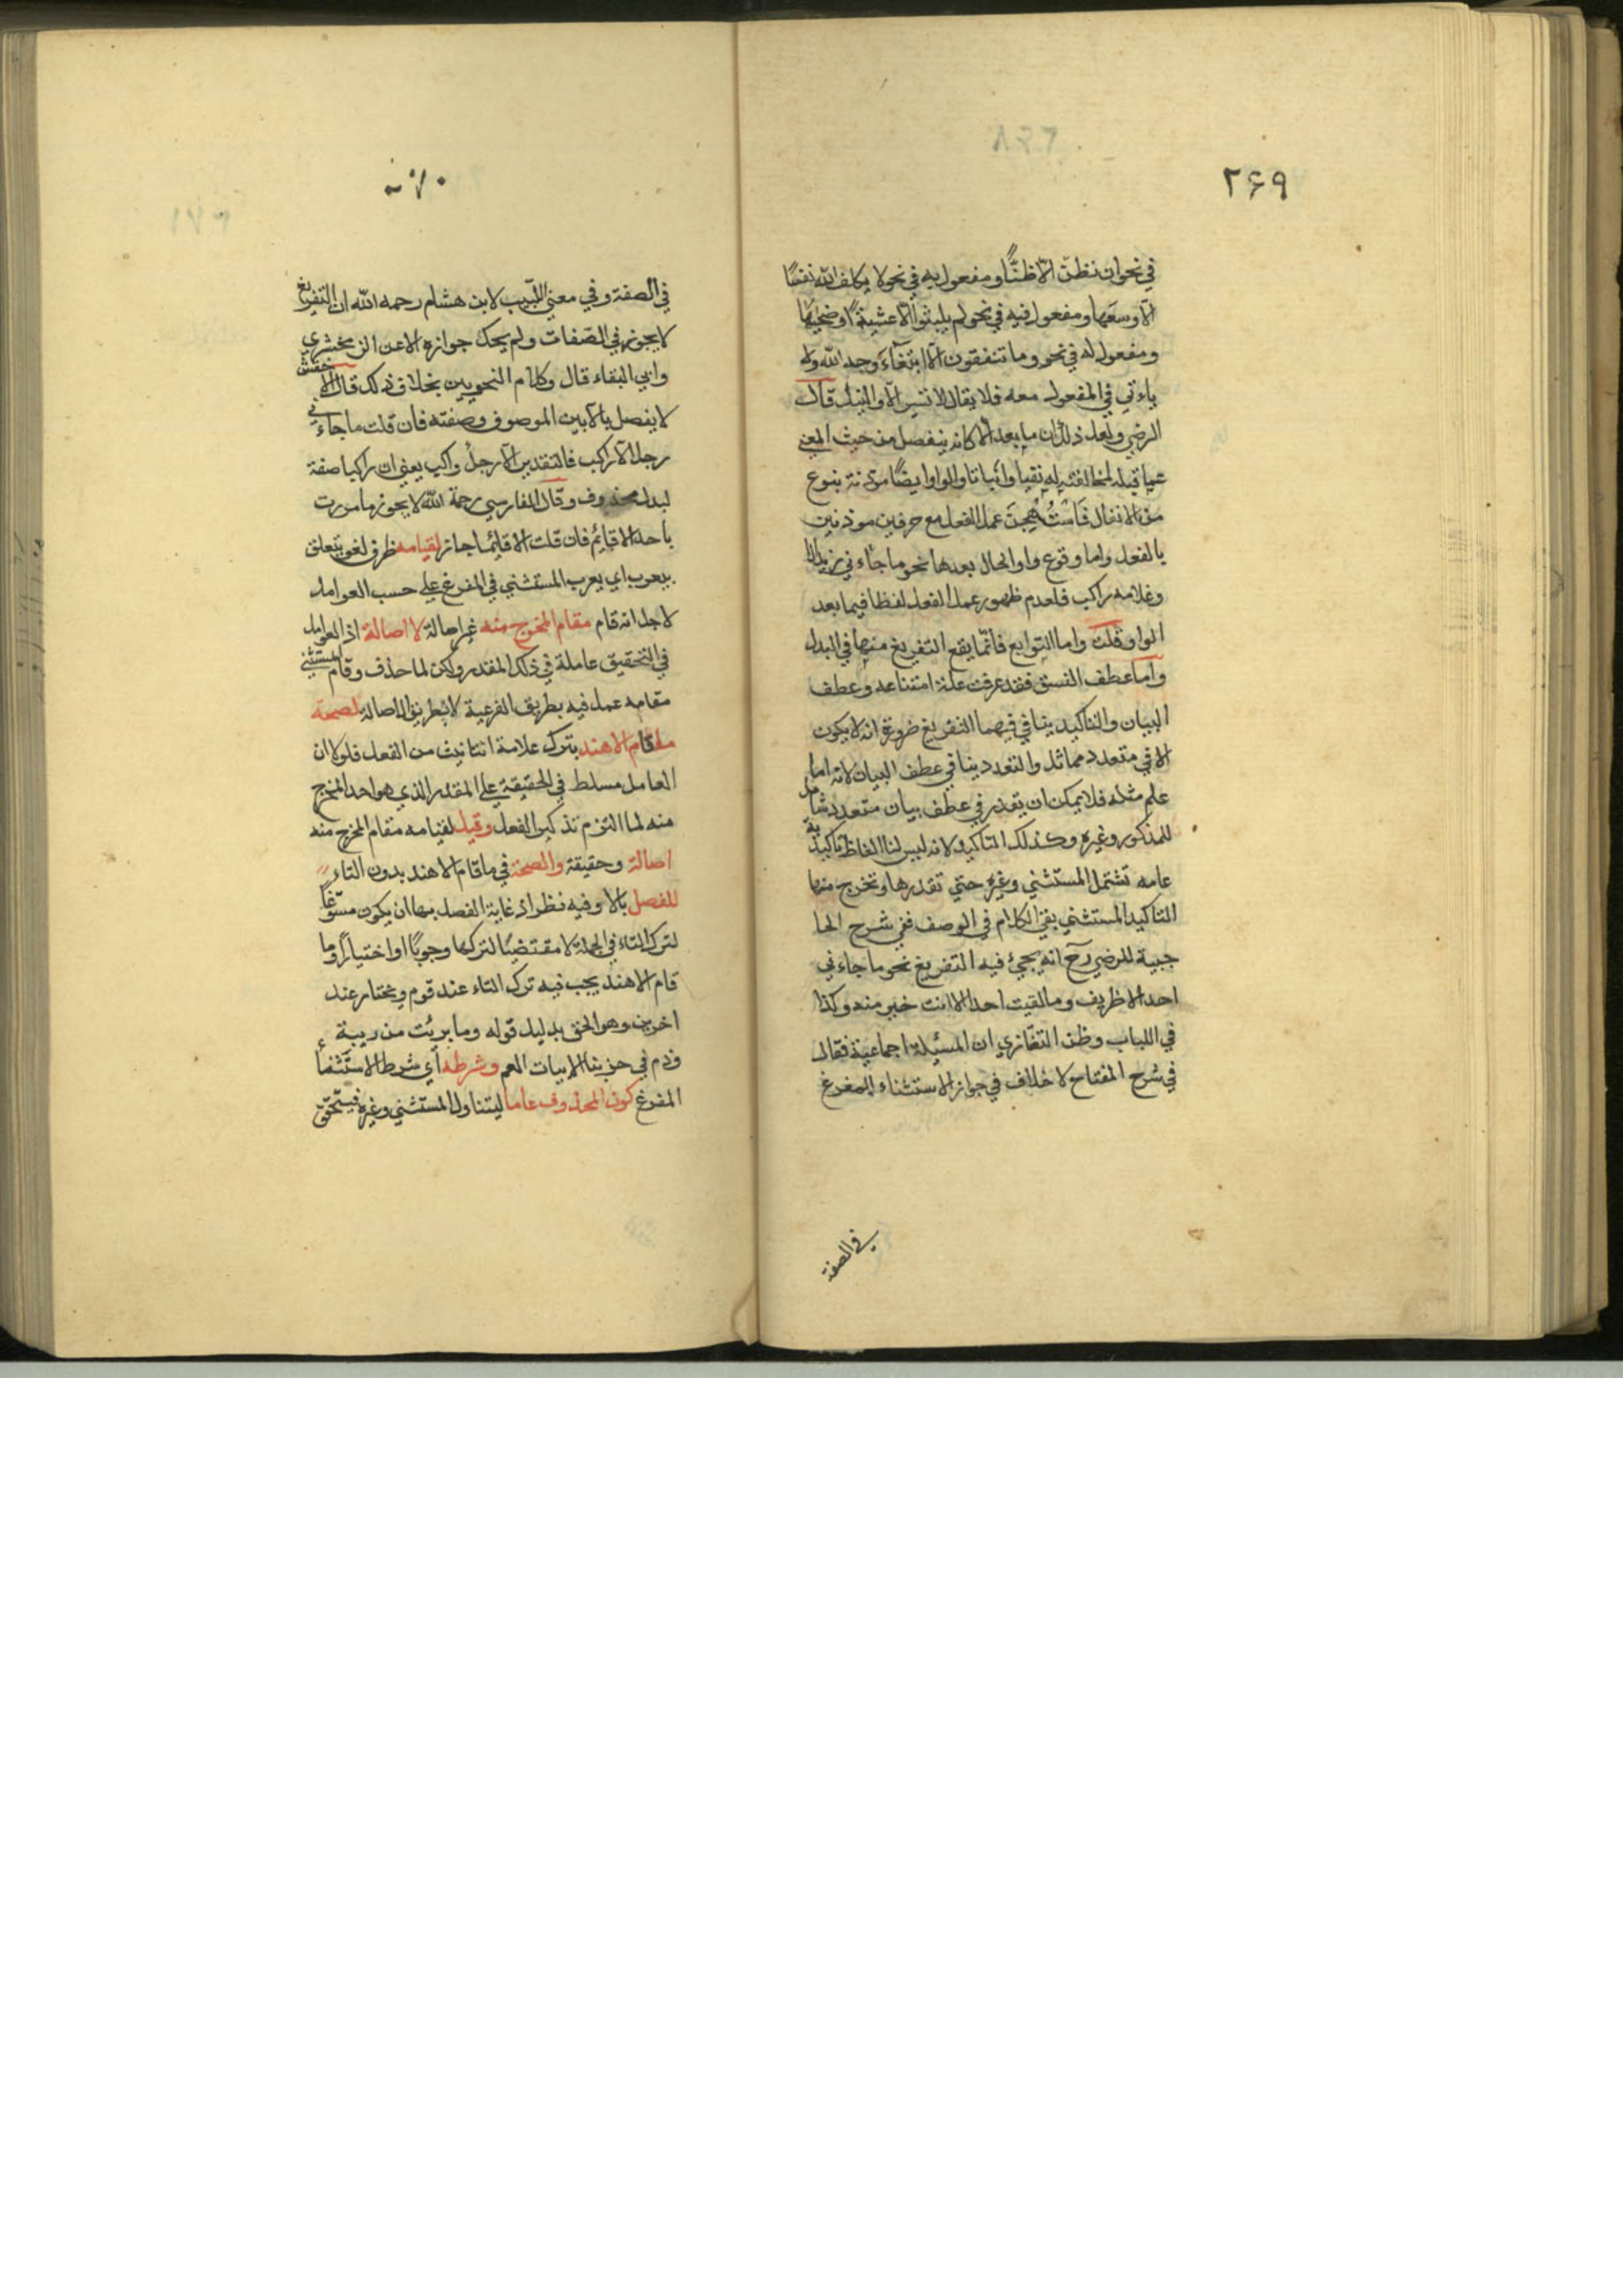 ۲۶۹
في نحو ان نظن الّا ظنًّا ومفعول به في نحو لا يكلف الله نفسًا
الّا وسعَها ومفعول فيه في نحو لم يلبثوا الّا عشيةً او ضحيٰها
ومفعول له في نحو وما تنفقون الّا ابتغآءَ وجه الله ولا
ياءتي في المفعول معه فلا يقال لا تسر الّا والنيل قال
الرضي ولعل ذلك ان ما بعد الّا كانه ينفصل من حيث المعني
عما قبله لمخالفته له نفيا واثباتا والواو ايضًا موذنة بنوع
من الانفال فَاسْتُهْجِنَ عمل الفعل مع حرفين موذنين
بالفعل واما وقوع واو الحال بعدها نحو ما جاءني زيد الا
وغلامه راكب فلعدم ظهور عمل الفعل لفظا فيما بعد
الواو قلت واما التوابع فانّما يقع التفريغ منها في البدل
واما عطف النسق فقد عرفت علة امتناعه وعطف
البيان والتاكيد ينافي فيهما التفريغ ضرورة انه لا يكون
الا في متعدد مماثل والتعدد ينافي عطف البيان لانه اما
علم مثله فلا يمكن ان يقدر في عطف بيان متعدد شامل
للمذكور وغيره وكذلك التاكيد لانه ليس لنا الفاظ تاكيدية
عامه تشتمل المستثني وغيره حتي تقدرها وتخرج منها
التاكيد المستثني بقي الكلام في الوصف ففي شرح الحا
جبية للرضي رح انه يجيء فيه التفريغ نحو ما جاءني
احد الا ظريف وما لقيت احدا الا انت خير منه وكذا
في اللباب وظن التفتازي ان المسئلة اجماعية فقال
في شرح المفتاح لا خلاف في جواز الاستثناء المفرغ
في الصفة
۲۷۰
في الصفة وفي معني اللّبيب لابن هشام رحمه الله ان التفريغ
لا يجوز في الصفات ولم يحك جوازه الا عن الزمخشري
وابي البقاء قال وكلام النحويين بخلاف ذلك قال الاخفش
لا يفصل بالا بين الموصوف وصفته فان قلت ما جاءني
رجل الّا راكب فالتقدير الّا رجلٌ راكب يعني ان راكبا صفة
لبدل محذوف وقال الفارسي رحمة الله لا يجوز ما مررت
باحد الا قايم فان قلت الا قايمًا جاز لقيامه ظرف لغو يتعلق
بيعرب اي يعرب المستثني في المفرغ علي حسب العوامل
لاجل انه قام مقام المخرج منه غير اصالة لا اصالة اذ العوامل
في التحقيق عاملة في ذلك المقدر ولكن لما حذف وقام المستثني
مقامه عمل فيه بطريق الفرعية لا بطريق الاصالة لصحة
ما قام الا هند بترك علامة التانيث من الفعل فلولا ان
العامل مسلط في الحقيقة علي المقدر الذي هو احد المخرج
منه لما التزم تذكير الفعل وقيل لقيامه مقام المخرج منه
اصالة وحقيقة والصحة في ما قام الا هند بدون التاء
للفصل بالا وفيه نظر اذ غاية الفصل بها ان يكون مسوّغًا
لترك التاء في الجملة لا مقتضيًا لتركها وجوبًا او اختيارًا وما
قام الا هند يجب فيه ترك التاء عند قوم ويختار عند
اخرين وهو الحق بدليل قوله وما بريُت من ريبة
وذم في حزبنا الا بنات العم وشرطه اي شرط الاستثناء
المفرغ كون المحذوف عاما ليتناول المستثني وغيره فيتحقق